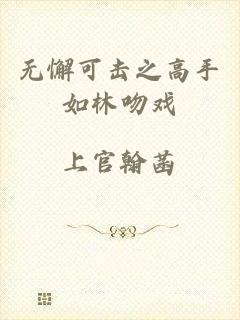 无懈可击之高手
如林吻戏
上官翰菡